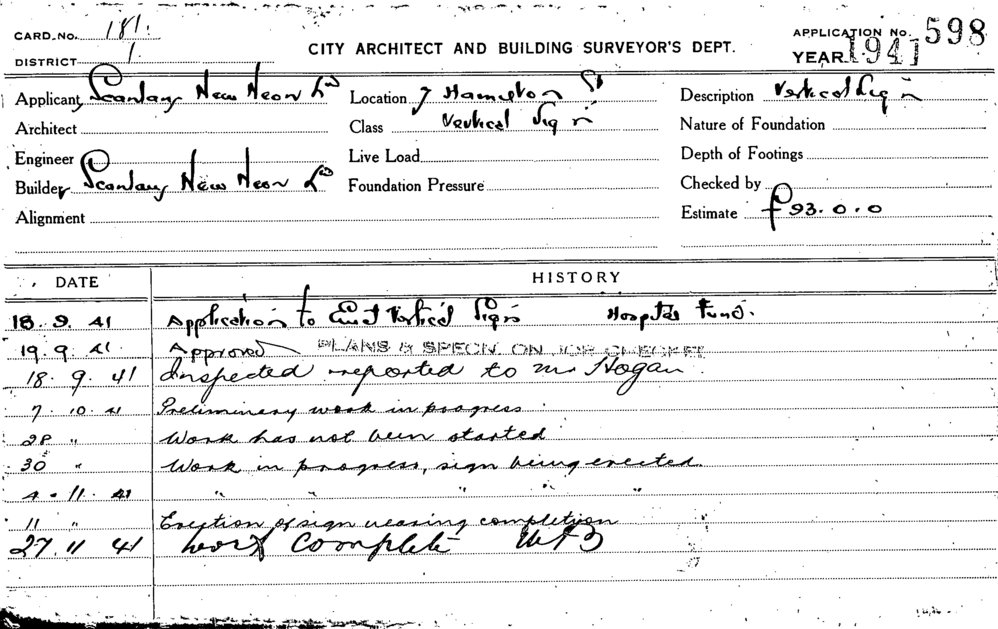 CARD No. 181.
DISTRICT 1
CITY ARCHITECT AND BUILDING SURVEYOR'S DEPT.
APPLICATION No. 598
YEAR 1941
Applicant Scanlans New Neon Ld
Location 7 Hamilton St
Description Vertical Sign
Architect
Class Vertical Sign
Nature of Foundation
Engineer
Live Load
Depth of Footings
Builder Scanlans New Neon Ld
Foundation Pressure
Checked by
Alignment
Estimate £93.0.0
DATE HISTORY
18.9.41 Application to Erect Vertical Sign Hospital Fund.
19.9.41 Approved PLANS & SPECN. ON JOB CHECKED
18.9.41 Inspected reported to Mr Hogan.
7.10.41 Preliminary work in progress
28 " Work has not been started
30 " Work in progress, sign being erected.
4.11.41 " " " " "
11 " Erection of sign nearing completion
27.11 41 Work Complete